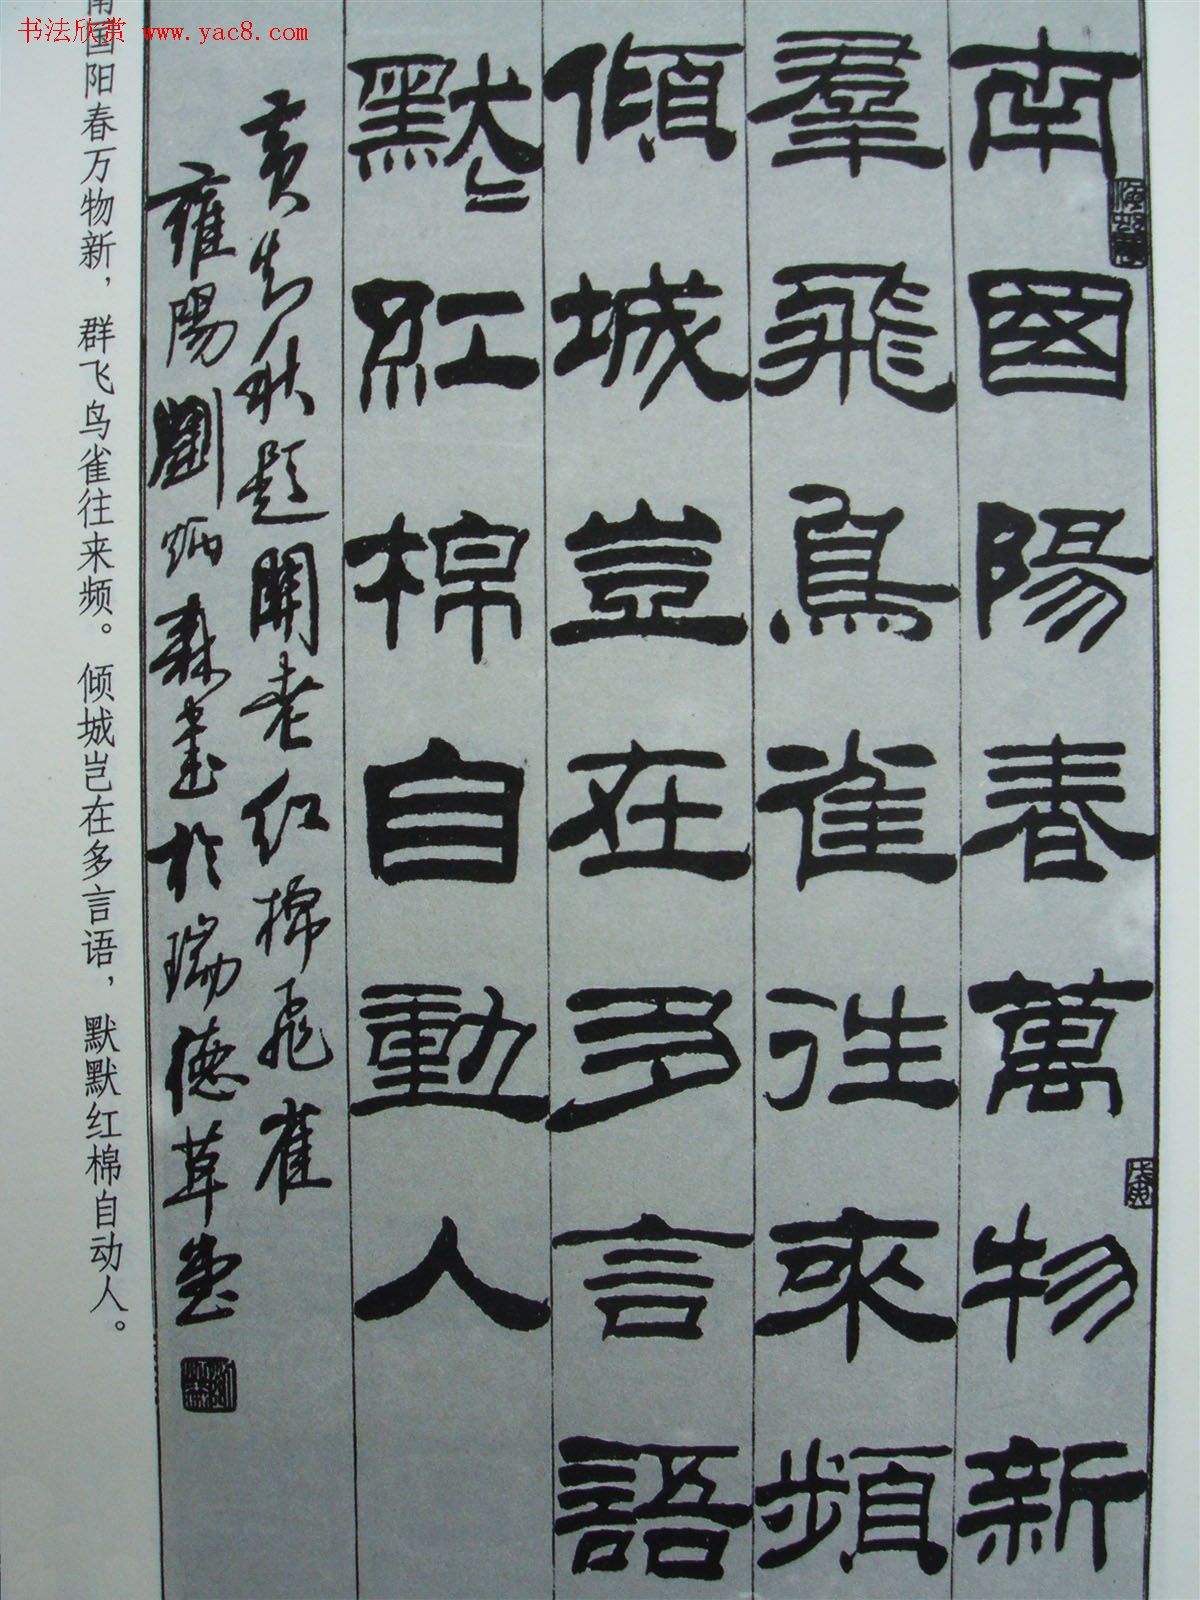 书法欣赏 www.yac8.com
南國陽春萬物新
羣飛鳥雀往來頻
傾城豈在多言語
默〻紅棉自動人
黄知秋题關老红棉飛雀
雍陽劉炳森書於瑞德草堂
南国阳春万物新，群飞鸟雀往来频。倾城岂在多言语，默默红棉自动人。